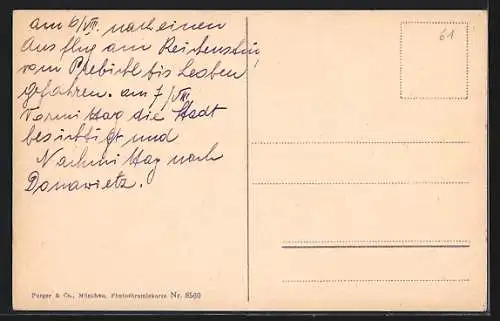 am 6/VIII. nach einen
Ausflug am Reichenstein,
vom Prebichl bis Leoben
gefahren. am 7/VIII.
Vormittag die Stadt
besichtigt und
Nachmittag nach
Donawietz.
61
Purger & Co., München, Photochromiekarte Nr. 8560